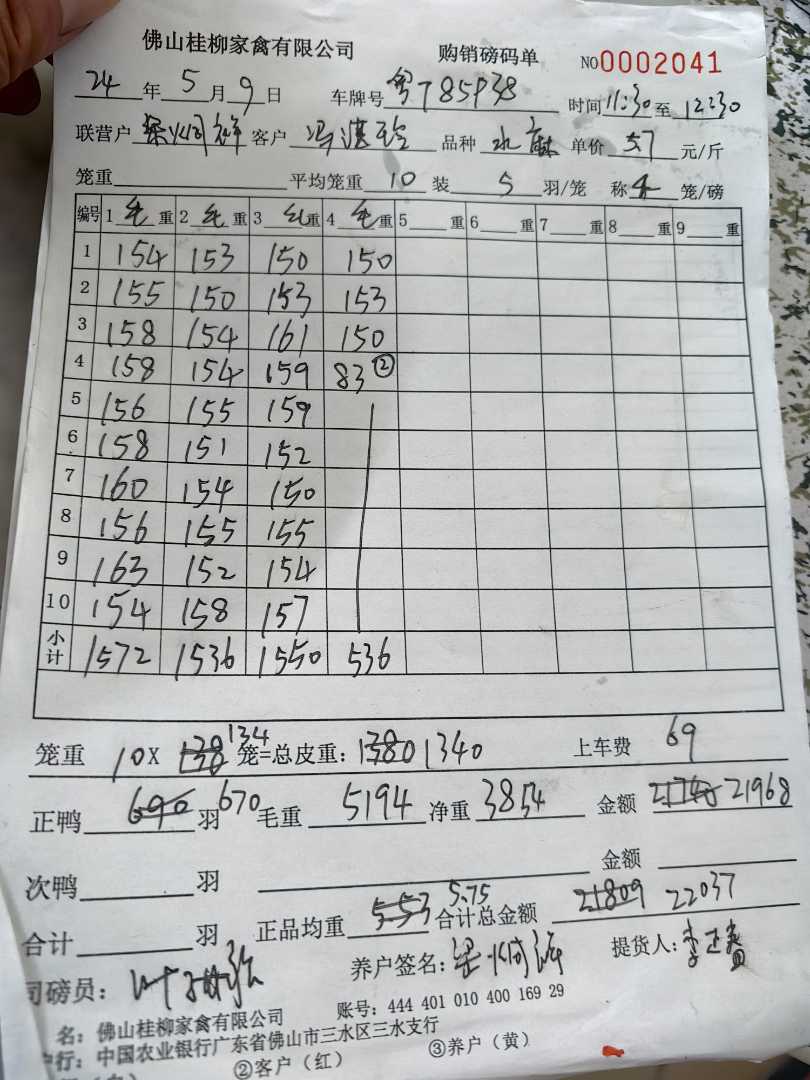 佛山桂柳家禽有限公司 购销磅码单 NO0002041
24年5月9日 车牌号 粤T85P38 时间11:30至12:30
联营户 客户 冯湛玲 品种 水麻 单价 5.7 元/斤
笼重 平均笼重 10 装 5 羽/笼 称 4 笼/磅
编号 1 毛 重 2 毛 重 3 毛 重 4 毛 重 5 重 6 重 7 重 8 重 9 重
1 154 153 150 150
2 155 150 153 153
3 158 154 161 150
4 158 154 159 83②
5 156 155 159
6 158 151 152
7 160 154 150
8 156 155 155
9 163 152 154
10 154 158 157
小计 1572 1536 1550 536
笼重 10X 138 134 笼=总皮重: 1380 1340 上车费 69
正鸭 690 羽 670 毛重 5194 净重 3854 金额 21740 21968
次鸭 羽 金额
合计 羽 正品均重 5.53 5.75 合计总金额 21809 22037
司磅员: 养户签名: 提货人:
名: 佛山桂柳家禽有限公司 账号: 444 401 010 400 169 29
户行: 中国农业银行广东省佛山市三水区三水支行
②客户(红) ③养户(黄)